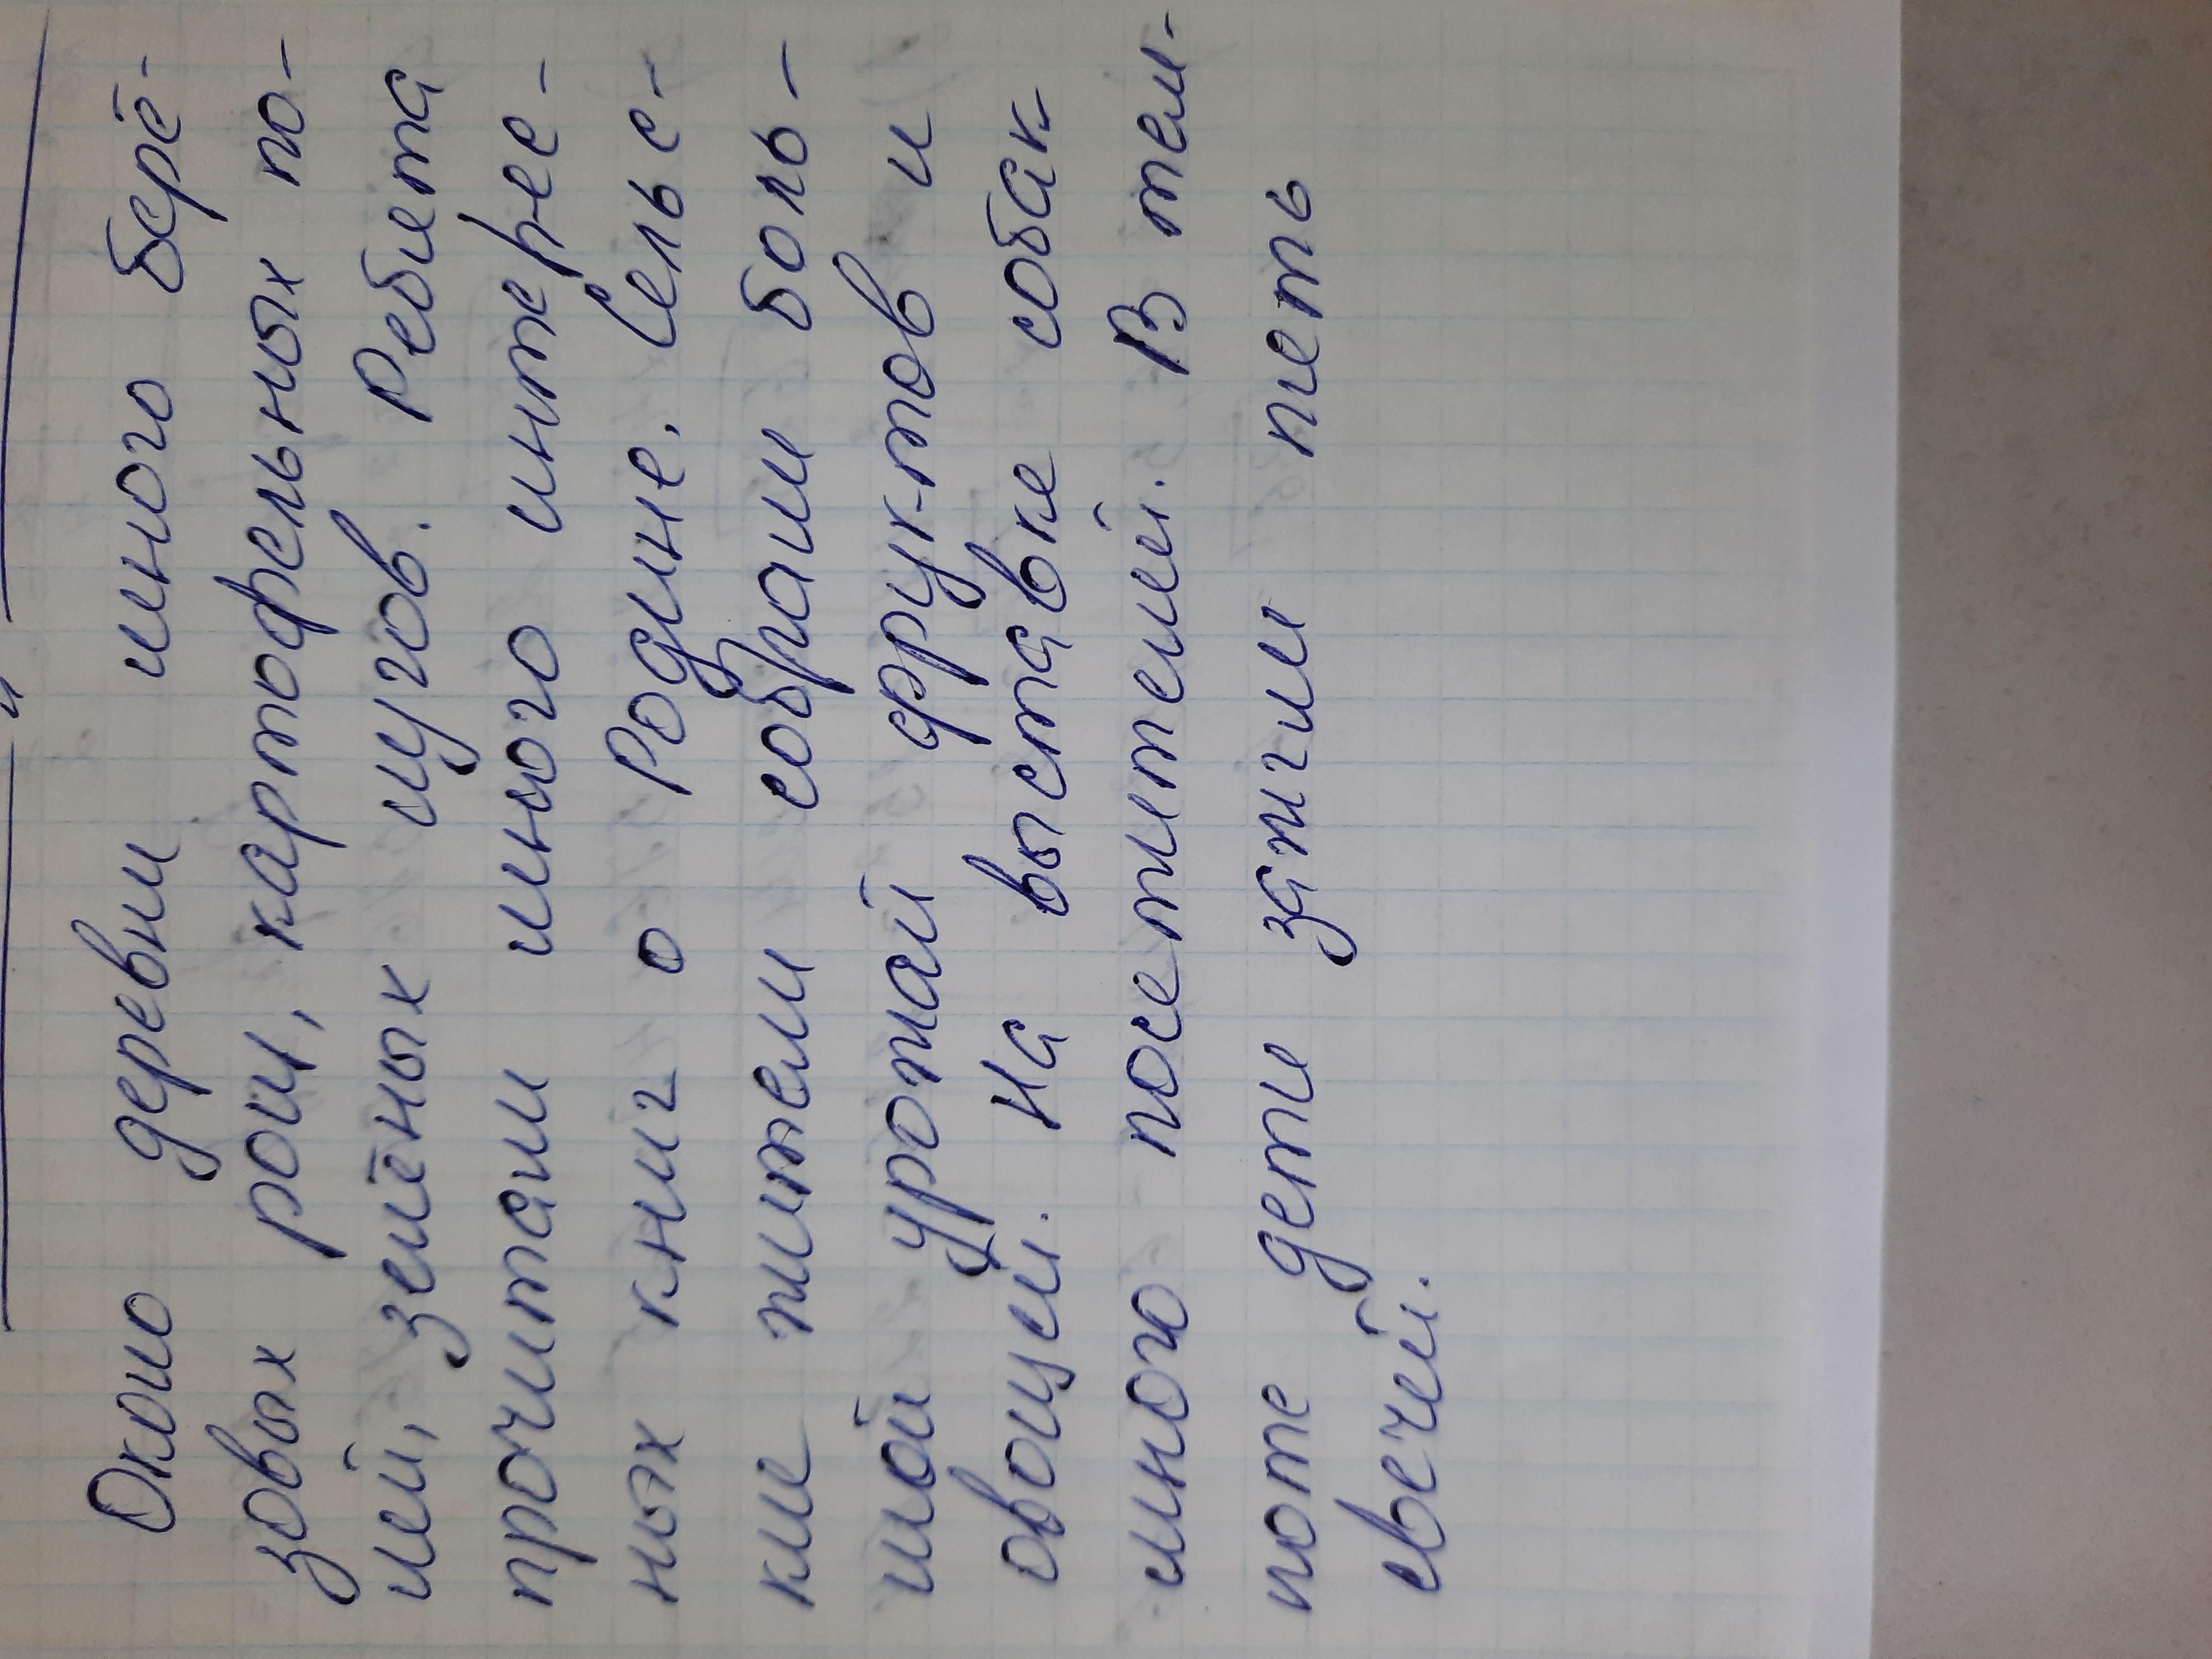 Около деревни много берё-
зовых рощ, картофельных по-
лей, зелёных лугов. Ребята
прочитали много интере-
ных книг о Родине. Сельс-
кие жители собрали боль-
шой урожай фруктов и
овощей. На выставке собак
много посетителей. В тем-
ноте дети зажгли пять
свечей.